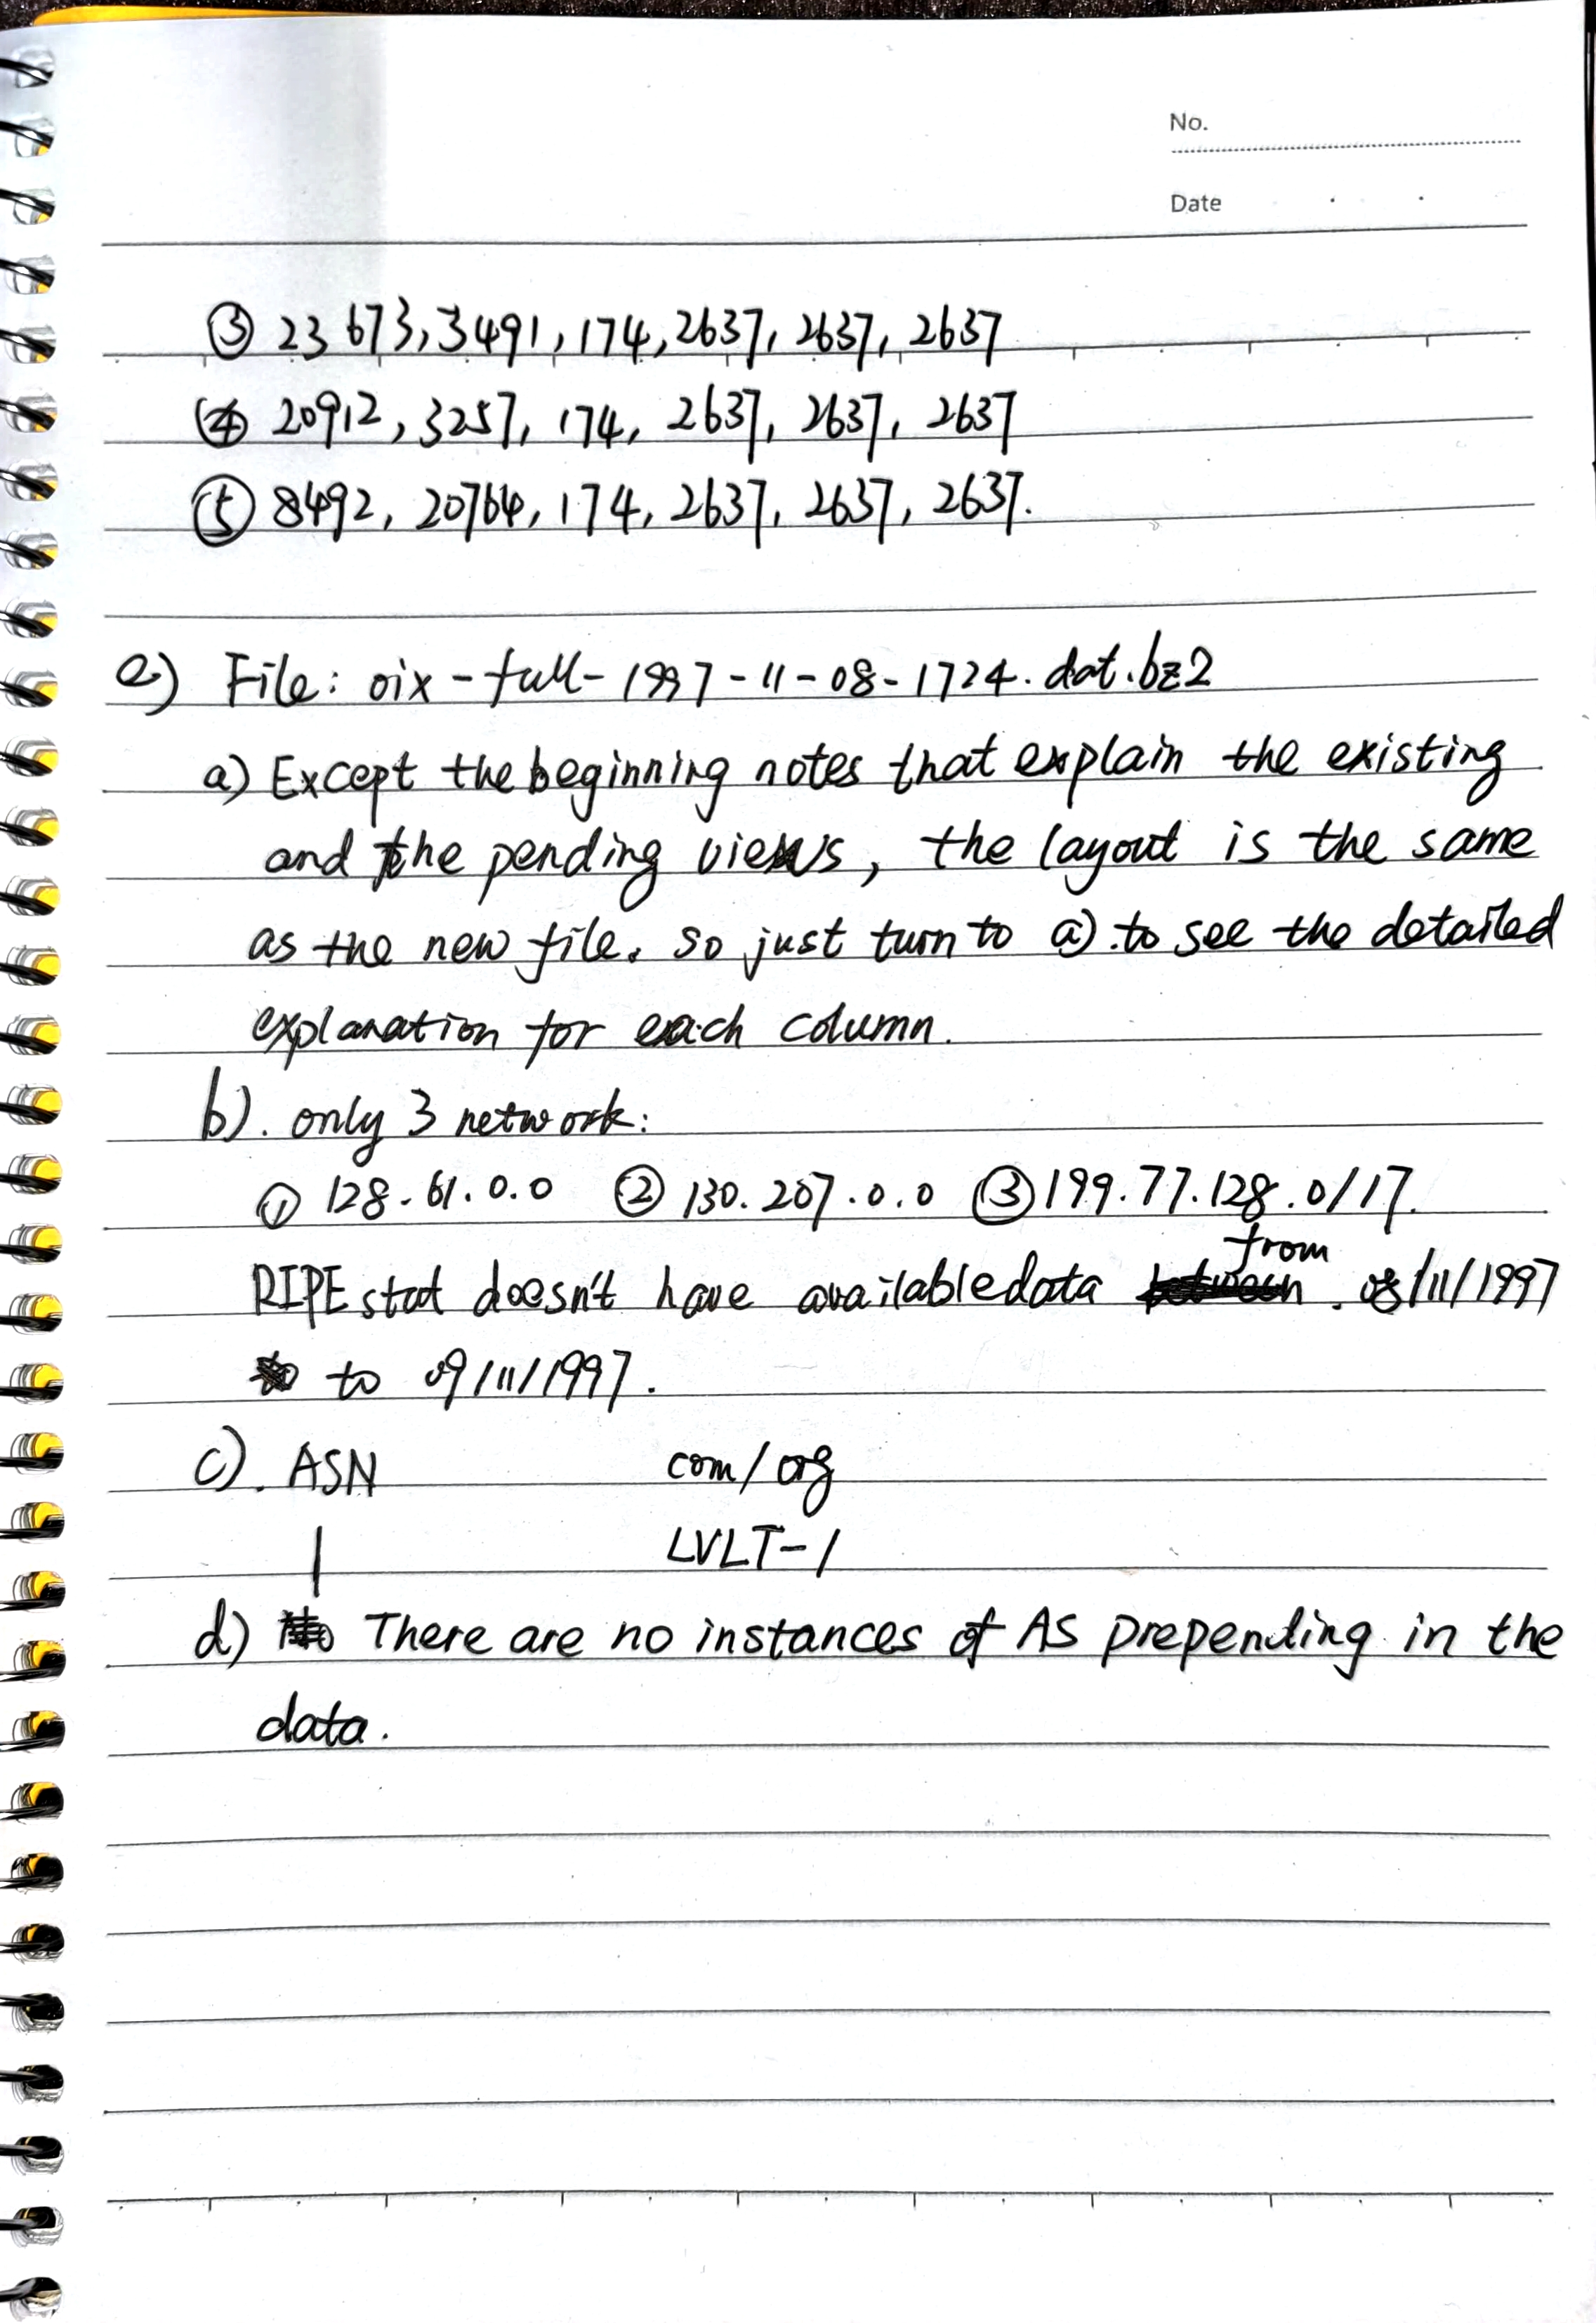 No.
Date
③ 23673, 3491, 174, 2637, 2637, 2637
④ 20912, 3257, 174, 2637, 2637, 2637
⑤ 8492, 20764, 174, 2637, 2637, 2637.
e) File: oix-full-1997-11-08-1724.dat.bz2
a) Except the beginning notes that explain the existing
and the pending views, the layout is the same
as the new file. so just turn to a). to see the detailed
explanation for each column.
b). only 3 network:
① 128.61.0.0 ② 130.207.0.0 ③ 199.77.128.0/17.
from
RIPE stat doesn't have available data . 08/11/1997
to 09/11/1997.
c). ASN com/org
1 LVLT-1
d) There are no instances of AS prepending in the
data.